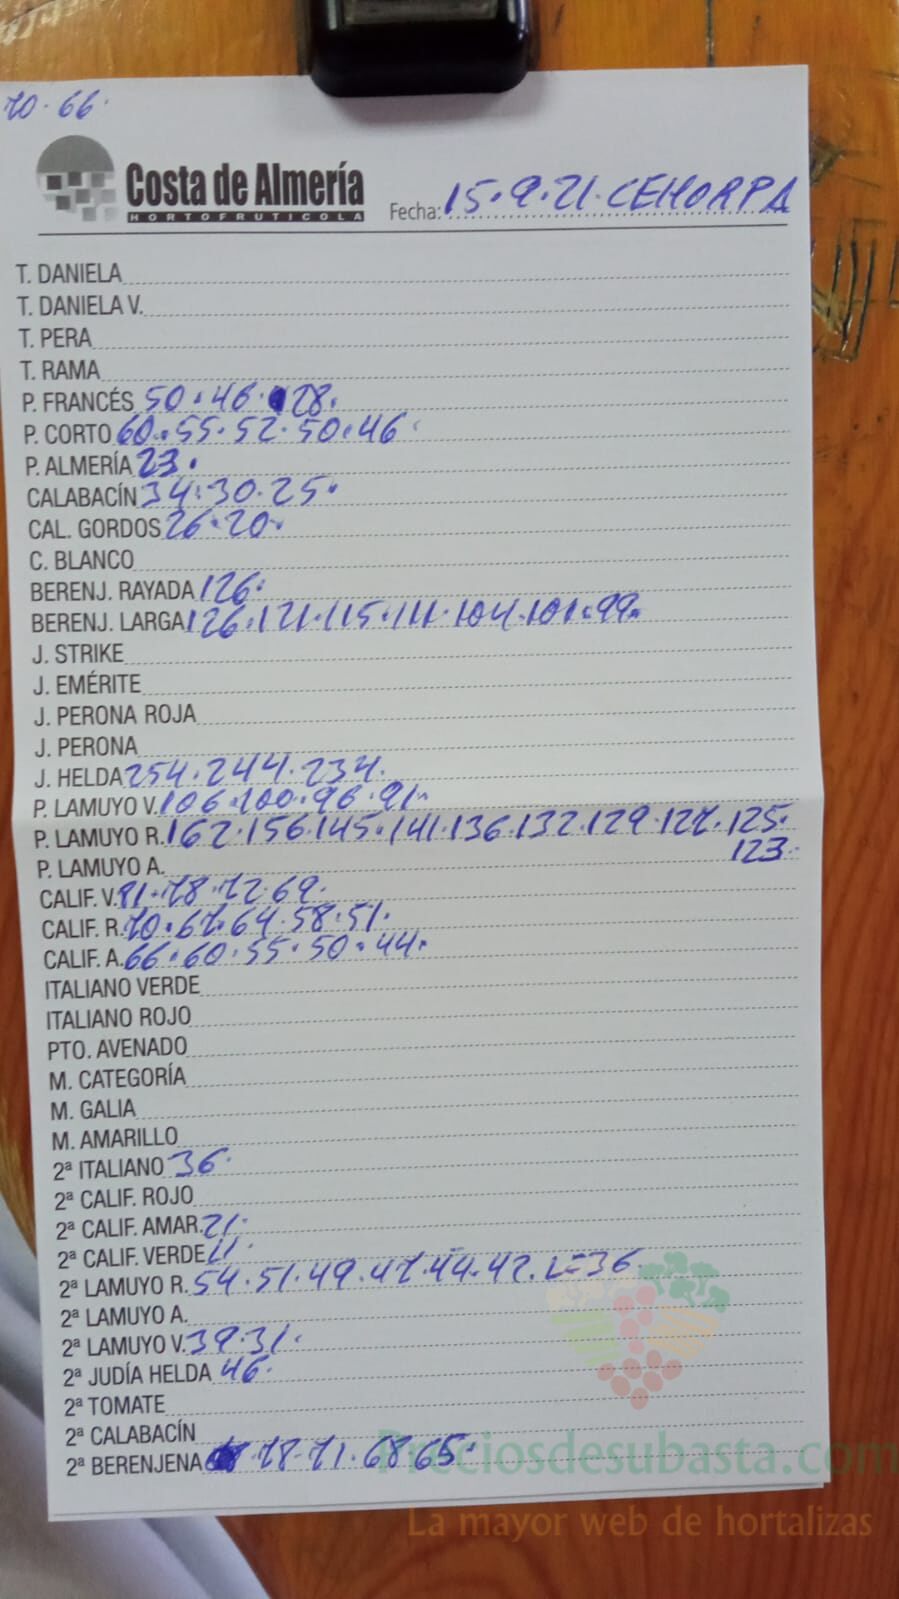 70. 66.
Costa de Almería
HORTOFRUTICOLA
Fecha: 15.9.21. CEHORPA
T. DANIELA
T. DANIELA V.
T. PERA
T. RAMA
P. FRANCÉS 50. 46. 28.
P. CORTO 60. 55. 52. 50. 46
P. ALMERÍA 23.
CALABACÍN 34. 30. 25.
CAL. GORDOS 26. 20.
C. BLANCO
BERENJ. RAYADA 126.
BERENJ. LARGA 126. 121. 115. 111. 104. 101. 99.
J. STRIKE
J. EMÉRITE
J. PERONA ROJA
J. PERONA
J. HELDA 254. 244. 234.
P. LAMUYO V. 106. 100. 96. 91.
P. LAMUYO R. 162. 156. 145. 141. 136. 132. 129. 127. 125.
123.
P. LAMUYO A.
CALIF. V. 81. 78. 72. 69.
CALIF. R. 70. 67. 64. 58. 51.
CALIF. A. 66. 60. 55. 50. 44.
ITALIANO VERDE
ITALIANO ROJO
PTO. AVENADO
M. CATEGORÍA
M. GALIA
M. AMARILLO
2ª ITALIANO 36.
2ª CALIF. ROJO
2ª CALIF. AMAR. 21.
2ª CALIF. VERDE
2ª LAMUYO R. 54. 51. 49. 47. 44. 42. L=36
2ª LAMUYO A.
2ª LAMUYO V. 39. 31.
2ª JUDÍA HELDA 46.
2ª TOMATE
2ª CALABACÍN
2ª BERENJENA 78. 71. 68. 65.
Preciosdesubasta.com
La mayor web de hortalizas